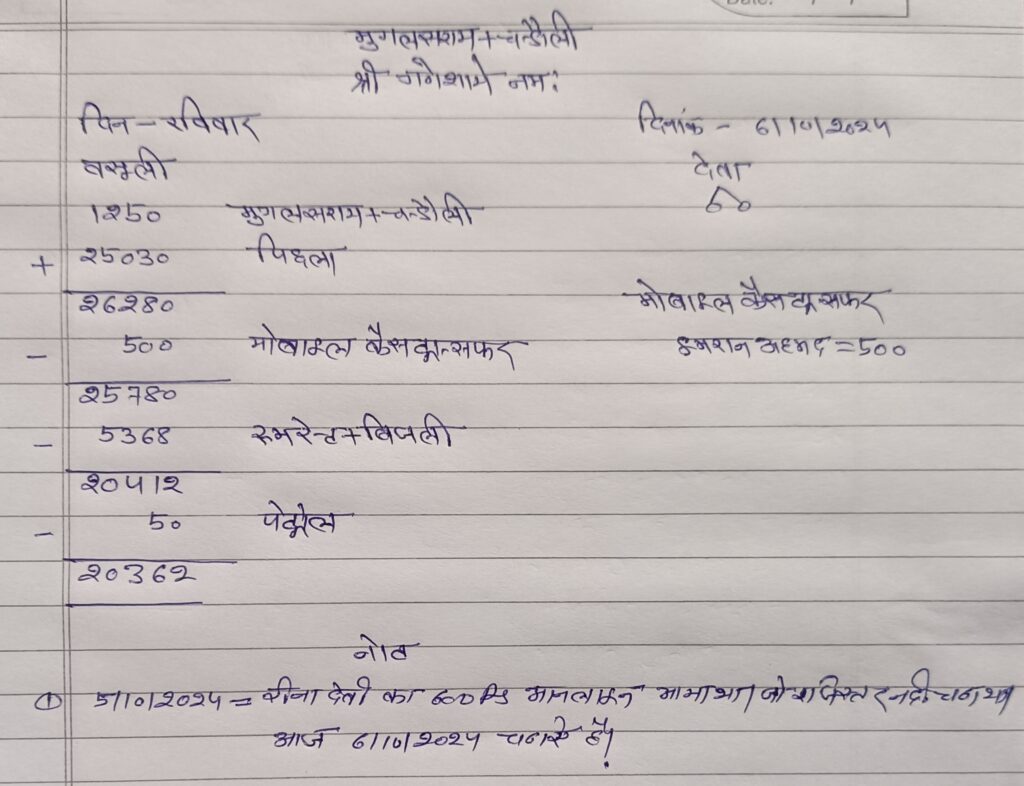 मुगलसराय+चन्दौली
श्री गणेशाये नमः
दिन - रविवार
दिनांक - 6/10/2024
वसूली
देना
60
1250 मुगलसराय+चन्दौली
+ 25030 पिछला
26280
मोबाइल कैस ट्रान्सफर
- 500 मोबाइल कैस ट्रान्सफर
इमरान अहमद = 500
25780
- 5368 रुमरेन्ट+बिजली
20412
- 50 पेट्रोल
20362
नोट
① 5/10/2024 = मीना देवी का 600 आनलाइन आया था जो नही चढा था
आज 6/10/2024 चढाये है।